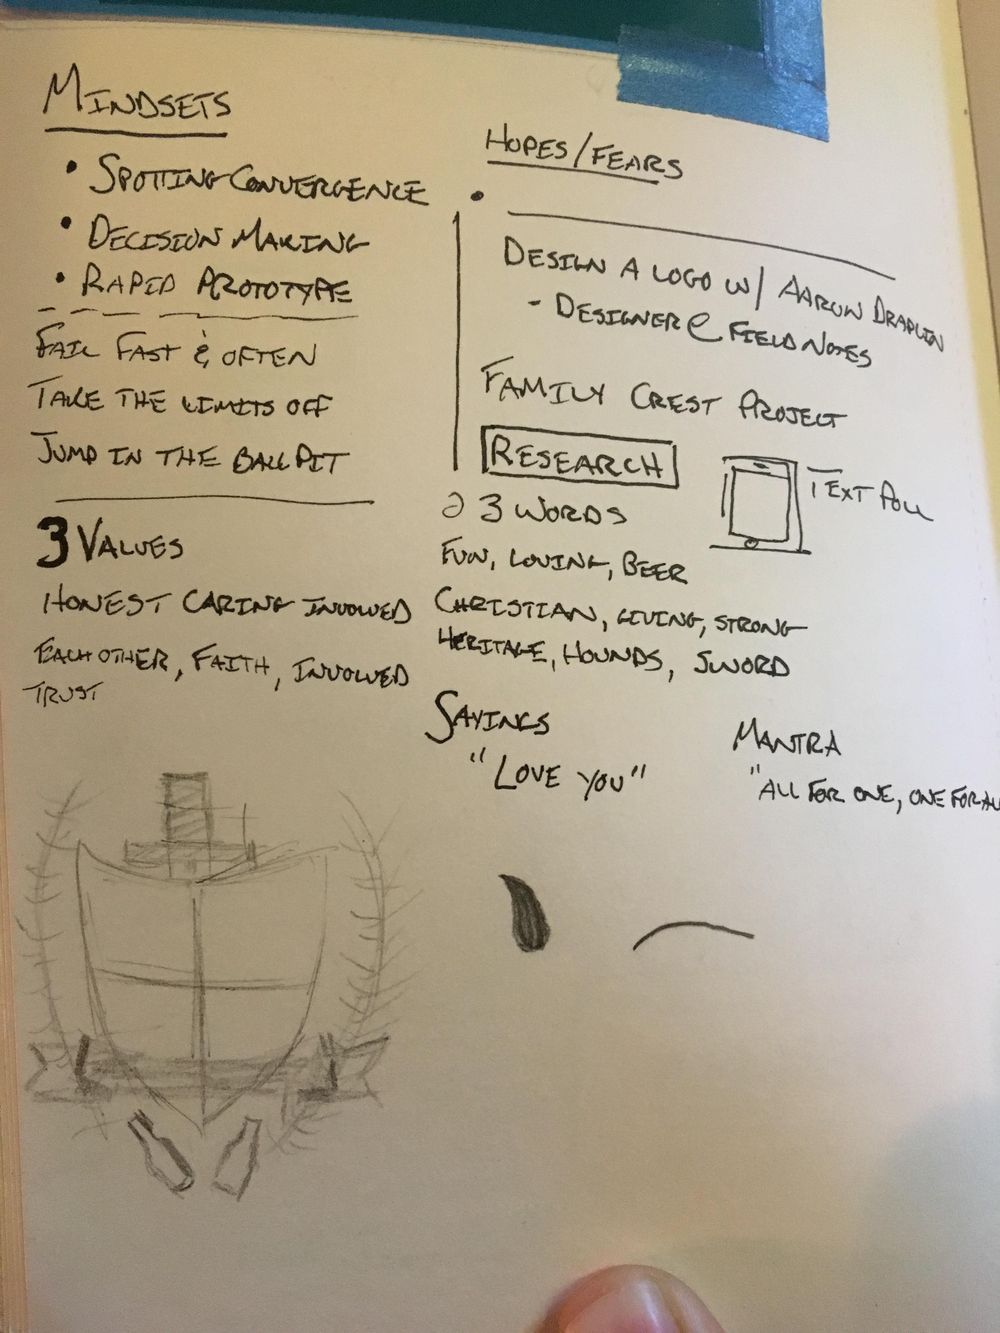 MINDSETS
• SPOTTING CONVERGENCE
• DECISION MAKING
• RAPID PROTOTYPE
FAIL FAST & OFTEN
TAKE THE LIMITS OFF
JUMP IN THE BALL PIT
3 VALUES
HONEST CARING INVOLVED
EACH OTHER, FAITH, INVOLVED
TRUST
HOPES/FEARS
•
DESIGN A LOGO W/ AARON DRAPLIN
- DESIGNER @ FIELD NOTES
FAMILY CREST PROJECT
RESEARCH
TEXT POLL
3 WORDS
FUN, LOVING, BEER
CHRISTIAN, GIVING, STRONG
HERITAGE, HOUNDS, SWORD
SAYINGS
"LOVE YOU"
MANTRA
"ALL FOR ONE, ONE FOR ALL